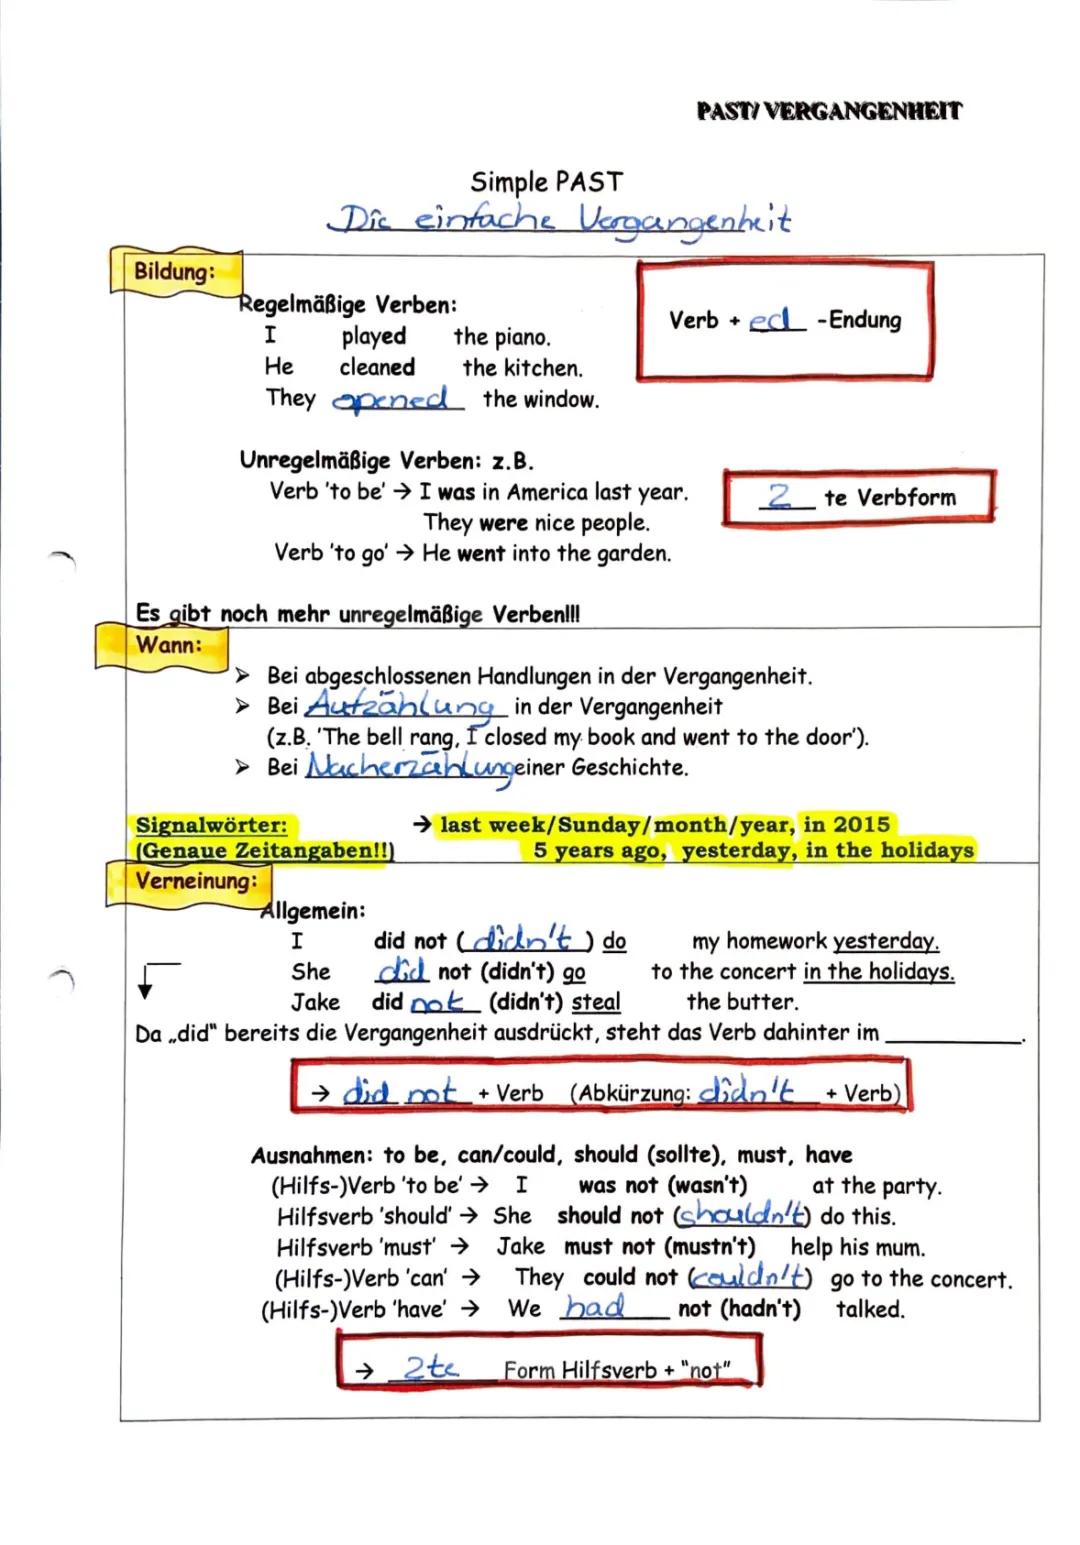 PAST/ VERGANGENHEIT
Simple PAST
Die einfache Vergangenheit
Bildung:
Regelmäßige Verben:
I played the piano.
He cleaned the kitchen.
They opened the window.
Verb + ed -Endung
Unregelmäßige Verben: z.B.
Verb 'to be' → I was in America last year.
They were nice people.
Verb 'to go' → He went into the garden.
2 te Verbform
Es gibt noch mehr unregelmäßige Verben!!!
Wann:
➤ Bei abgeschlossenen Handlungen in der Vergangenheit.
➤ Bei Aufzählung in der Vergangenheit
(z.B. 'The bell rang, I closed my book and went to the door').
➤ Bei Nacherzählung einer Geschichte.
Signalwörter: → last week/Sunday/month/year, in 2015
(Genaue Zeitangaben!!) 5 years ago, yesterday, in the holidays
Verneinung:
Allgemein:
I did not (didn't) do my homework yesterday.
She did not (didn't) go to the concert in the holidays.
Jake did not (didn't) steal the butter.
Da „did" bereits die Vergangenheit ausdrückt, steht das Verb dahinter im ____________.
→ did not + Verb (Abkürzung: didn't + Verb)
Ausnahmen: to be, can/could, should (sollte), must, have
(Hilfs-)Verb 'to be' → I was not (wasn't) at the party.
Hilfsverb 'should' → She should not (shouldn't) do this.
Hilfsverb 'must' → Jake must not (mustn't) help his mum.
(Hilfs-)Verb 'can' → They could not (couldn't) go to the concert.
(Hilfs-)Verb 'have' → We had not (hadn't) talked.
→ 2te Form Hilfsverb + "not"